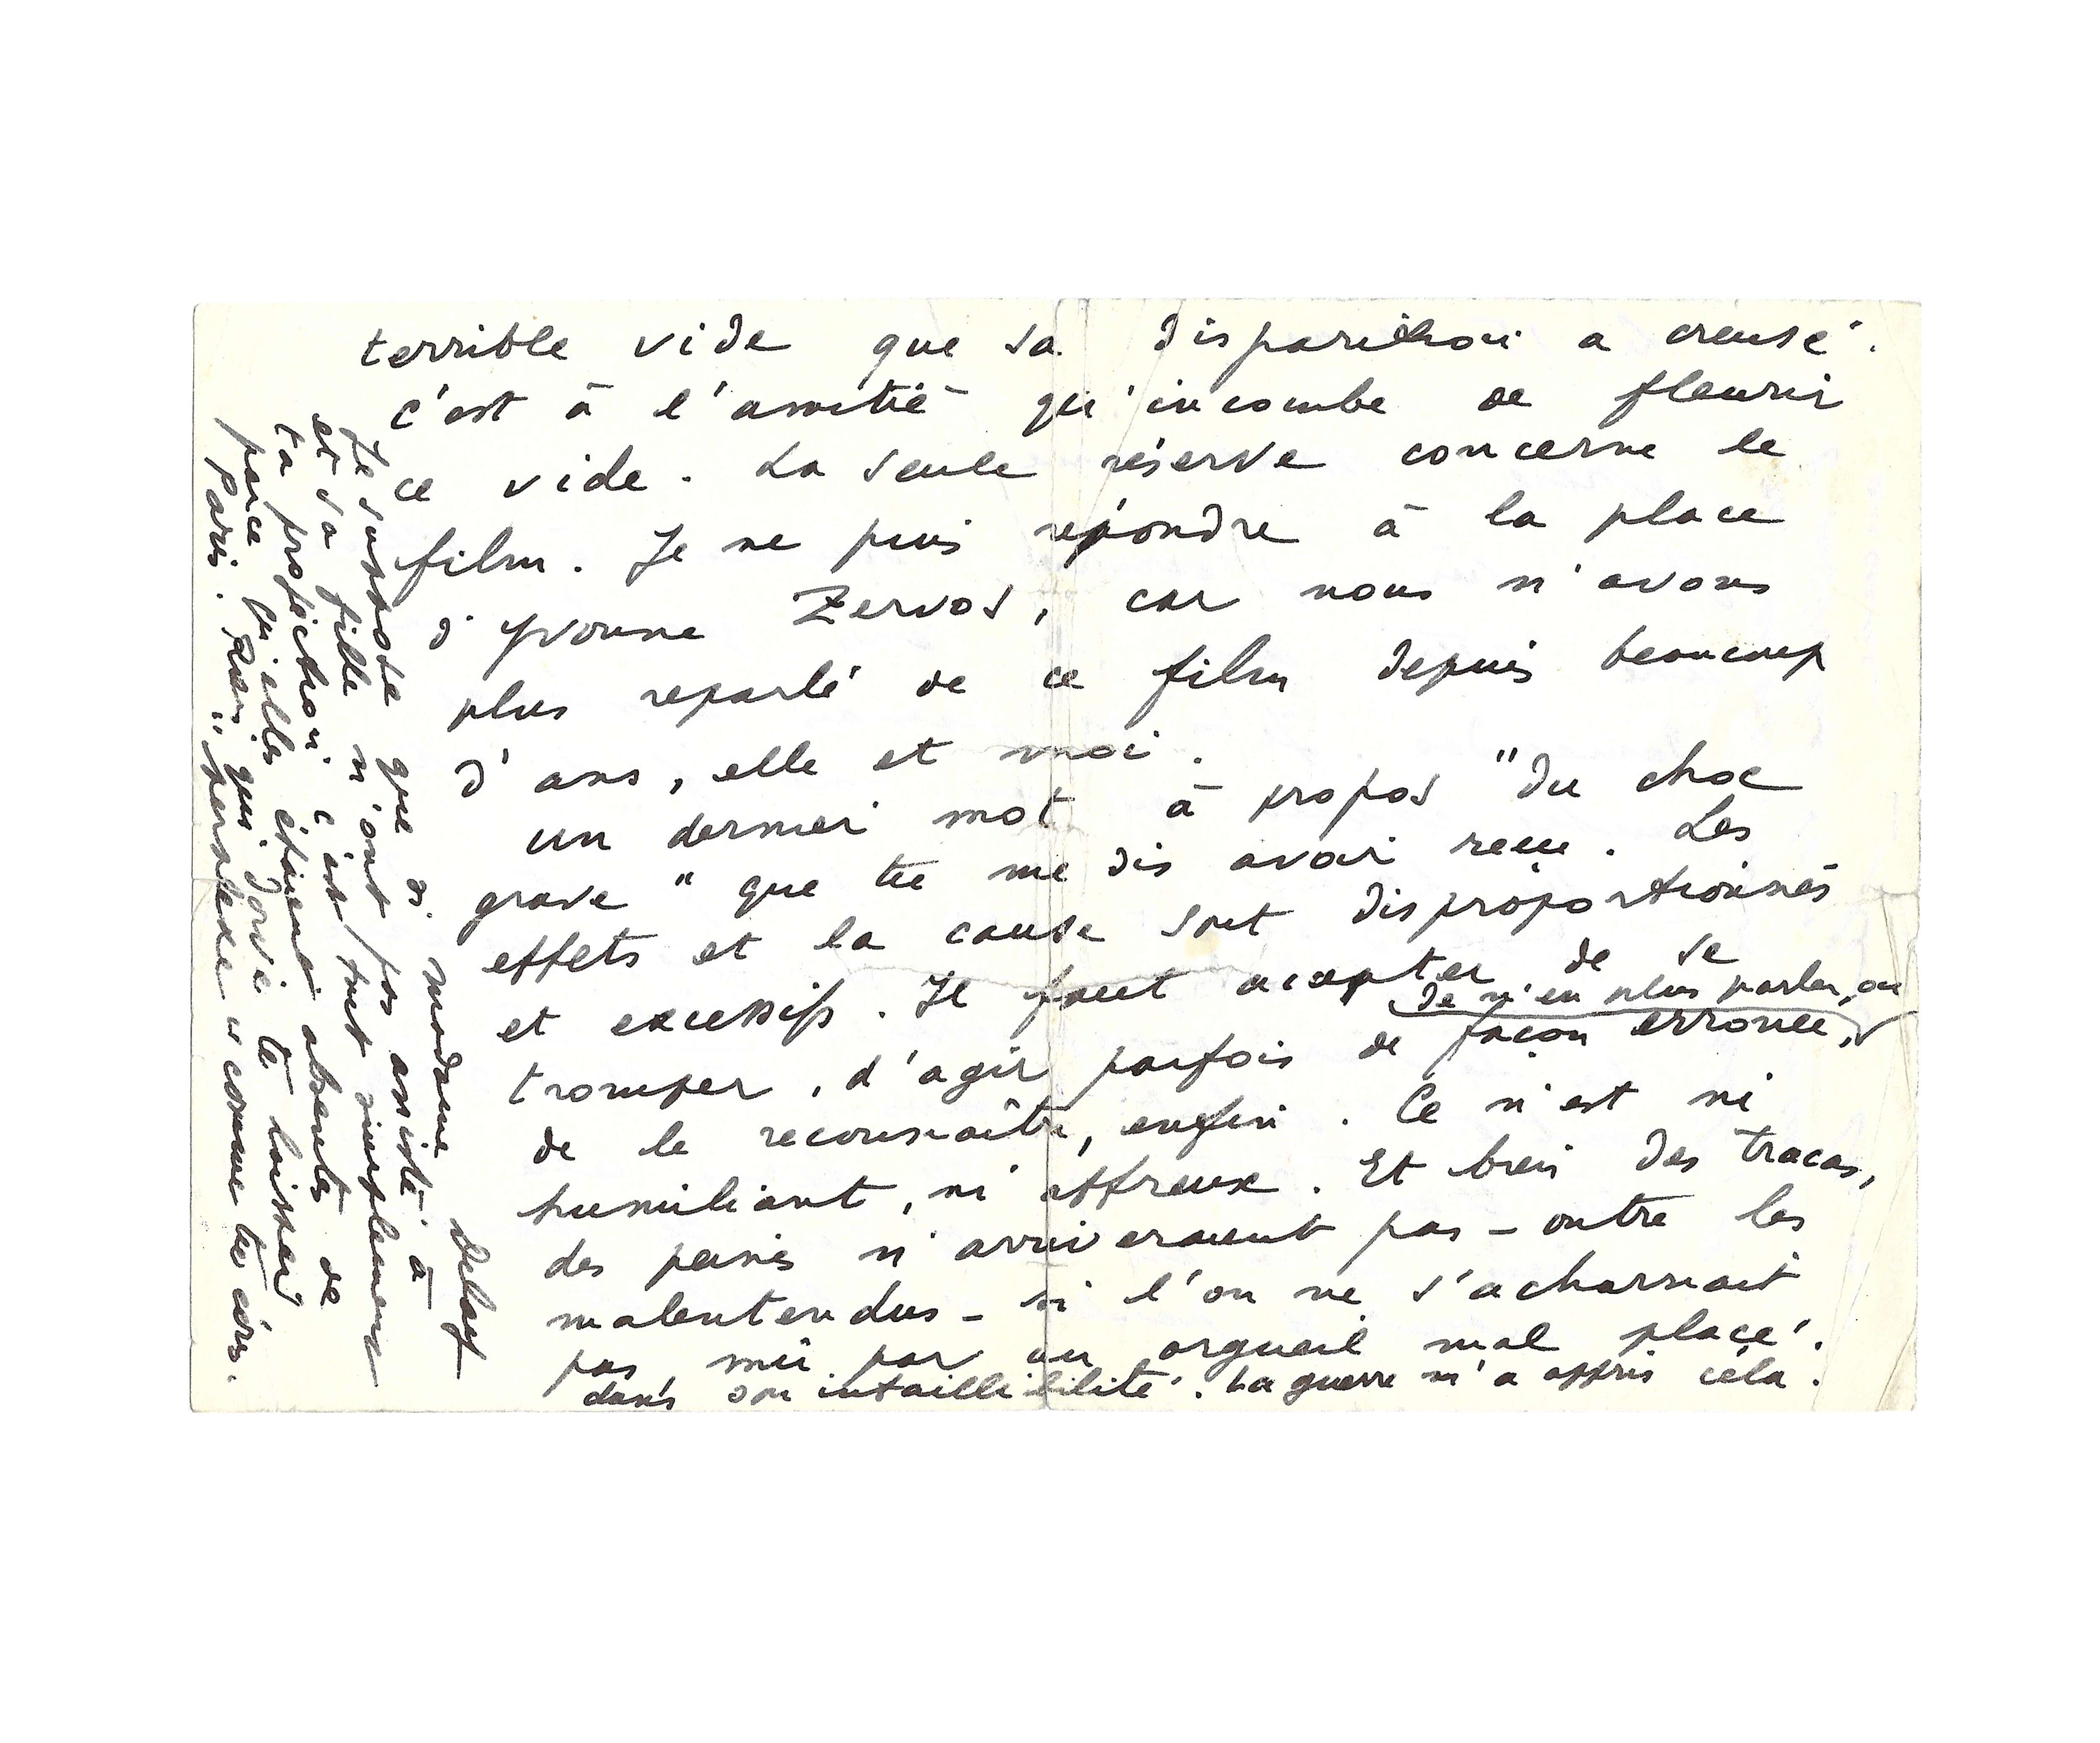 terrible vide que sa disparition a creusé.
C'est à l'amitié qu'incombe de fleurir
ce vide. La seule réserve concerne le
film. Je ne puis répondre à la place
d'Yvonne Zervos, car nous n'avons
plus reparlé de ce film depuis beaucoup
d'ans, elle et moi.
Un dernier mot à propos "du choc
grave" que tu me dis avoir reçu. Les
effets et la cause sont disproportionnés
et excessifs. Il faut accepter de se
tromper, d'agir parfois de façon erronée,
de n'en plus parler, ou
de le reconnaître, enfin. Ce n'est ni
humiliant, ni affreux. Et bien des tracas,
des peines n'arriveraient pas - outre les
malentendus - si l'on ne s'acharnait
pas mû par un orgueil mal placé.
dans son infaillibilité. La guerre m'a appris cela.
Je suppose que si Madame Delay
et sa fille n'ont pas assisté à
ta projection c'est tout simplement
parce qu'elles étaient absentes de
Paris. Rien qui doive te laisser
"perplexe" comme tu écris.